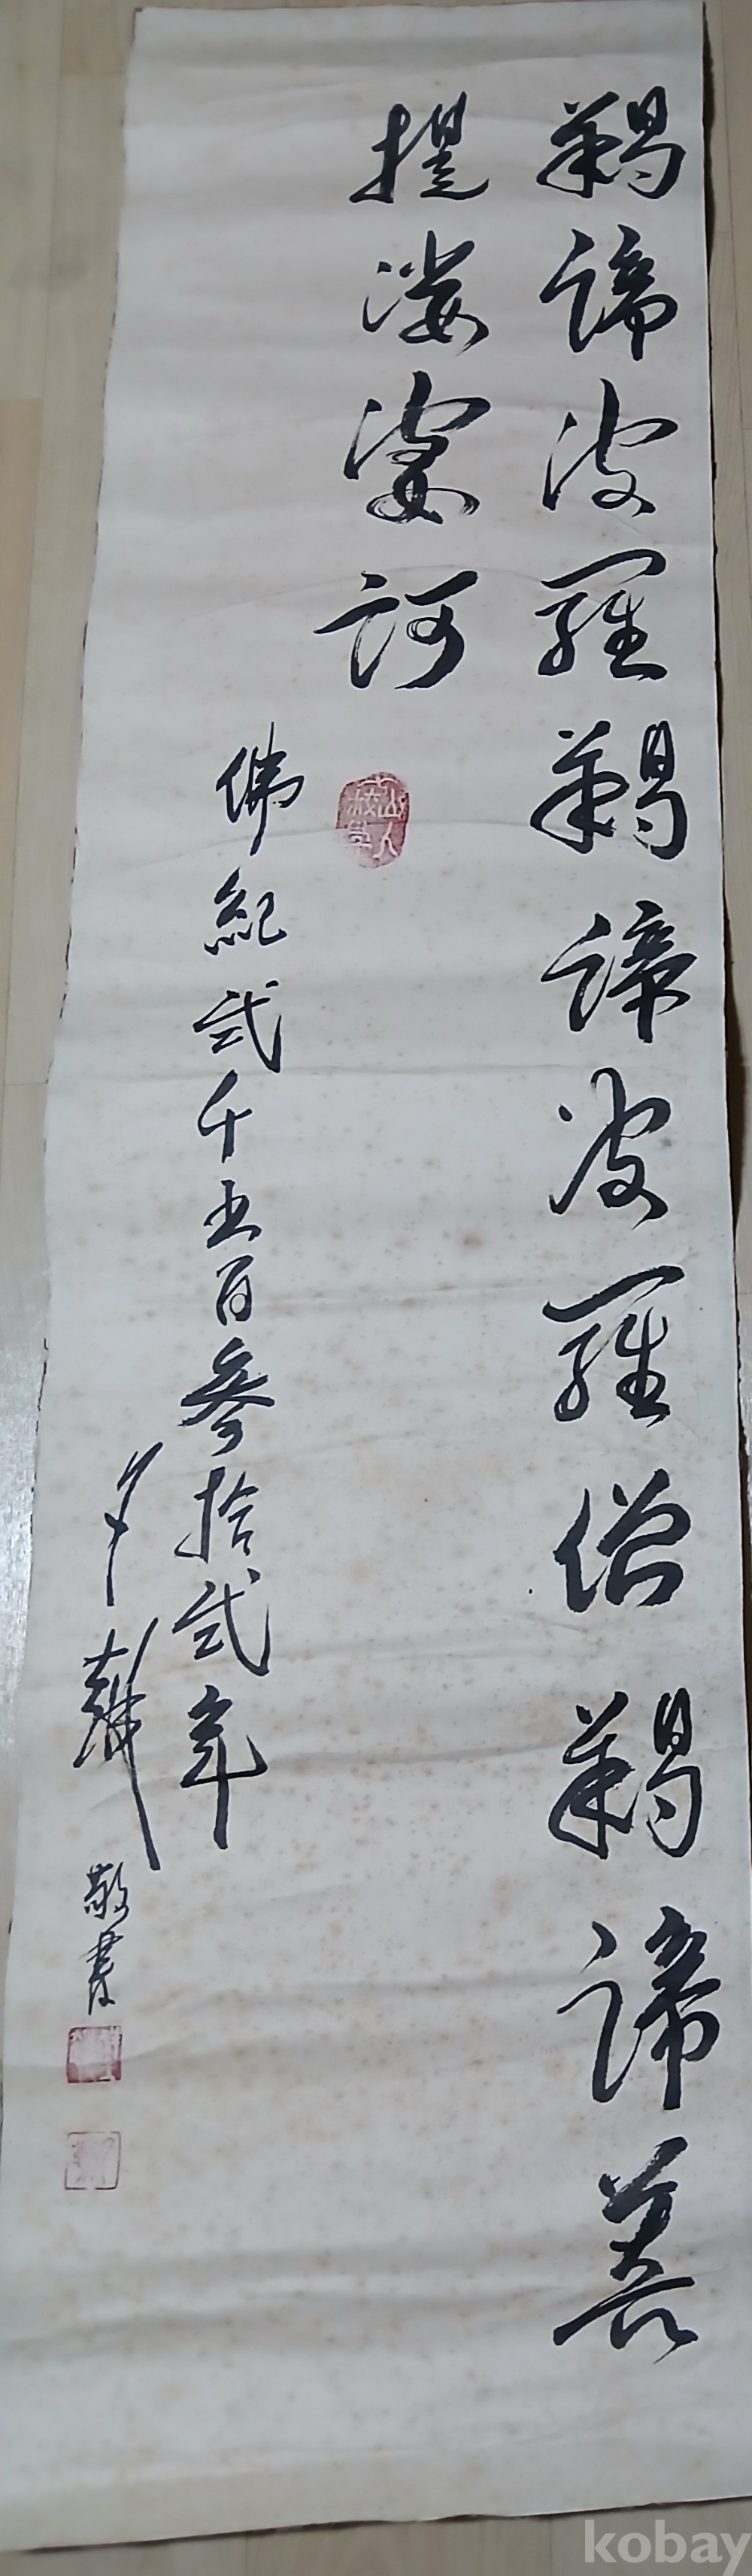 羯諦波羅羯諦波羅僧羯諦菩
提娑婆訶
佛紀弐千五百參拾弐年
敬書
kobay